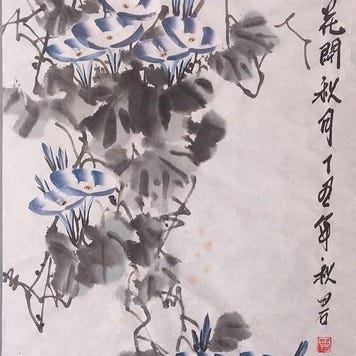 花開秋月丁丑年秋